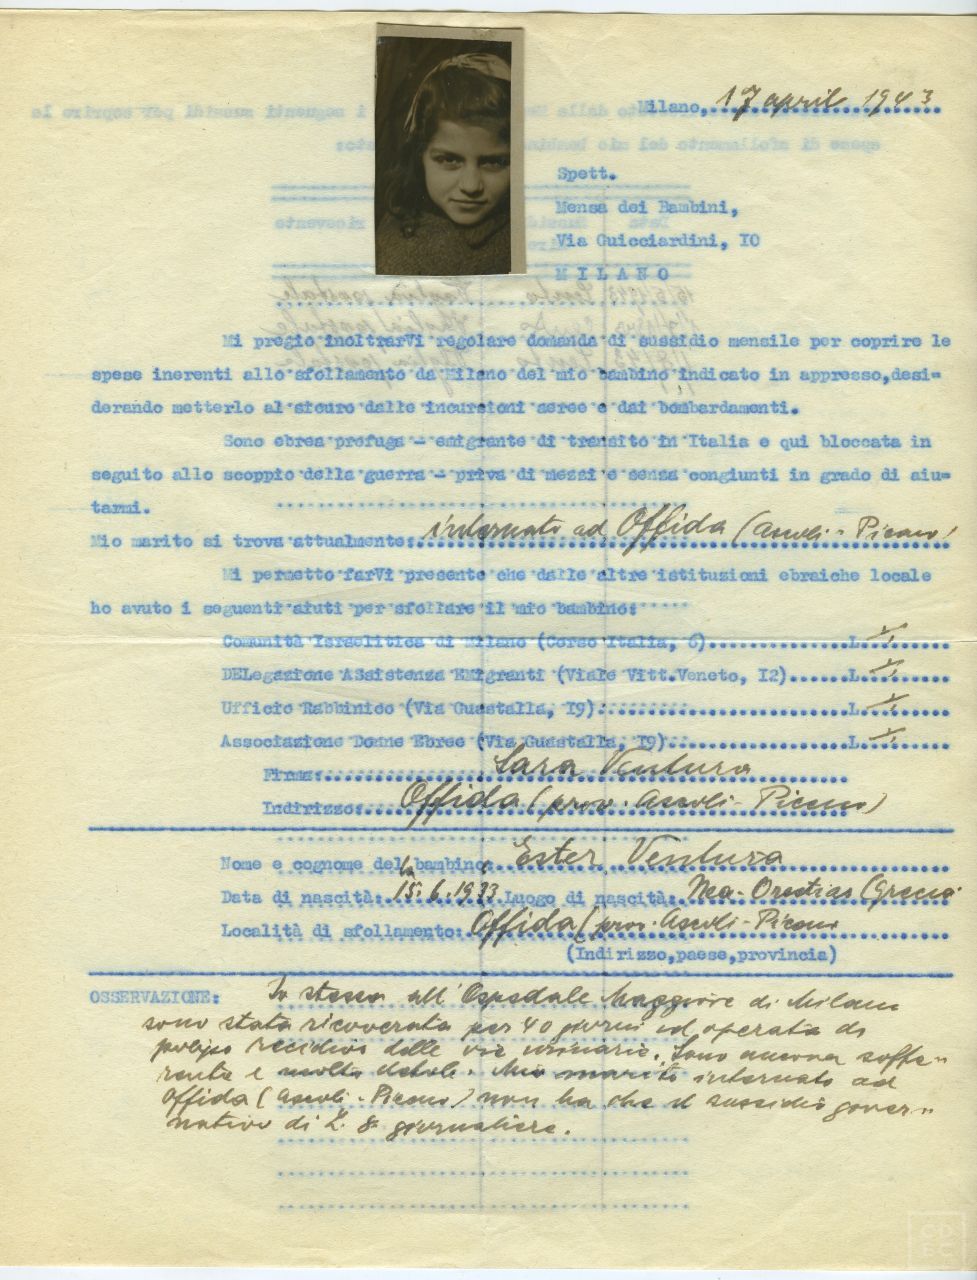 Milano, 17 april 1943
Spett.
Mensa dei Bambini,
Via Guicciardini, 10
MILANO
Mi pregio inoltrarVi regolare domanda di sussidio mensile per coprire le
spese inerenti allo sfollamento da Milano del mio bambino indicato in appresso,desi=
derando metterlo al sicuro dalle incursioni aeree e dai bombardamenti.
Sono ebrea profuga - emigrante di transito in Italia e qui bloccata in
seguito allo scoppio della guerra - priva di mezzi e senza congiunti in grado di aiu=
tarmi.
Mio marito si trova attualmente: internato ad Offida (Ascoli-Piceno)
Mi permetto farVi presente che dalle altre istituzioni ebraiche locale
ho avuto i seguenti aiuti per sfollare il mio bambino:
Comunità Israelitica di Milano (Corso Italia, 6)....................L.
DELegazione ASsistenza EMigranti (Viale Vitt.Veneto, 12).......L.
Ufficio Rabbinico (Via Guastalla, 19):..............................L.
Associazione Donne Ebree (Via Guastalla, 19).......................L.
Firma: Sara Ventura
Indirizzo: Offida (prov. Ascoli-Piceno)
Nome e cognome della bambino: Ester Ventura
Data di nascità: 15.6.1933 Luogo di nascità: Nea-Orestias (Grecia
Località di sfollamento: Offida (prov. Ascoli-Piceno
(Indirizzo,paese,provincia)
OSSERVAZIONE: Io stessa all'Ospedale Maggiore di Milano
sono stata ricoverata per 40 giorni ed operata di
polipo recidivo delle vie urinarie. Sono ancora soffe-
rente e molto debole. Mio marito internato ad
Offida (Ascoli-Piceno) non ha che il sussidio gover-
nativo di L. 8 giornaliere.
CD
EC